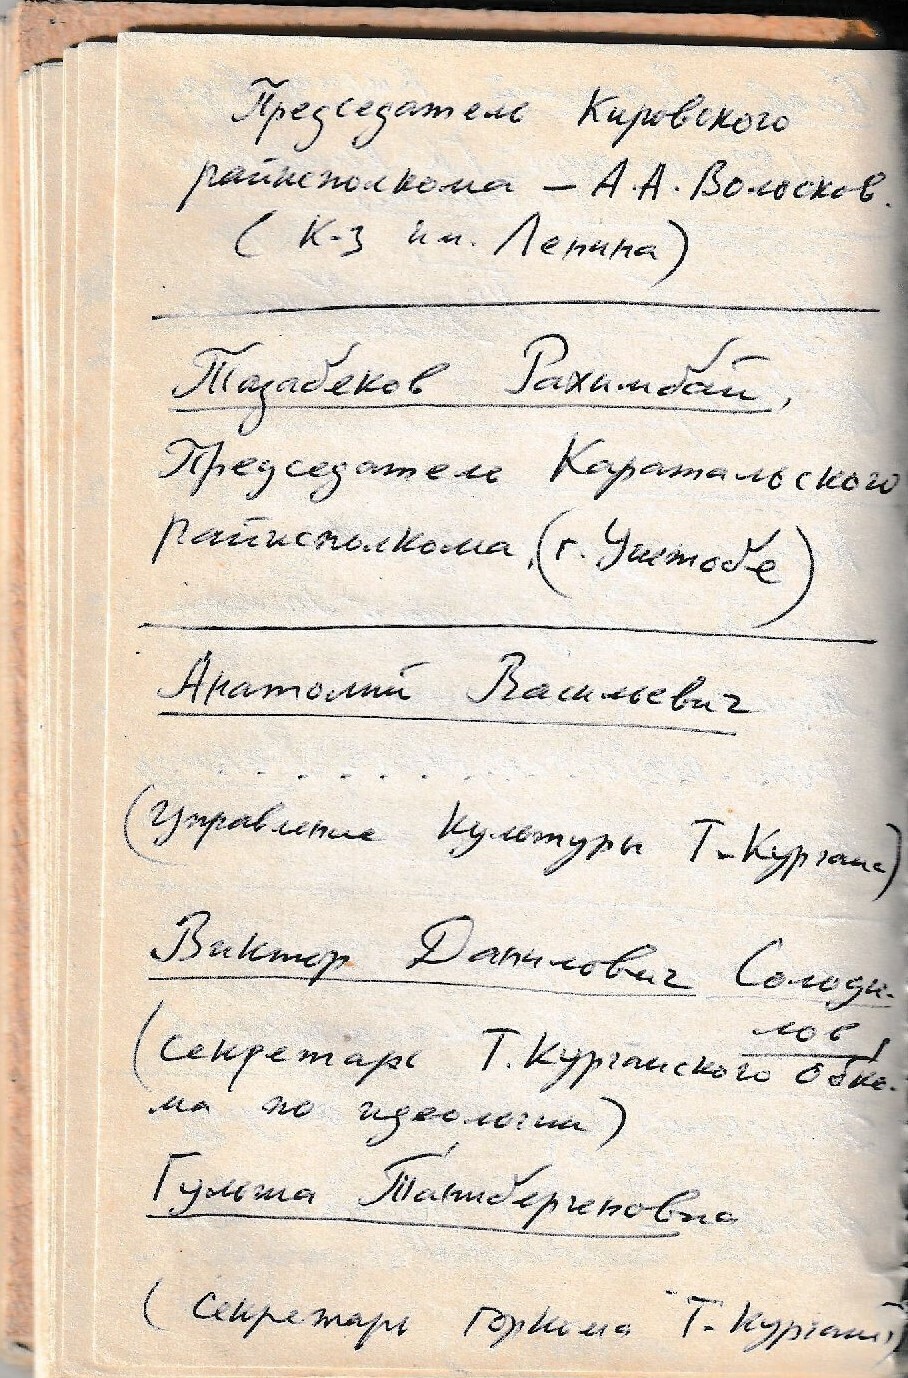 Председатель Кировского
райисполкома – А.А. Волосков.
( к-з им. Ленина)
Тазабеков Рахимбай,
Председатель Каратальского
райисполкома, (г. Уштобе)
Анатолий Васильевич
. . . . . . . . . .
(управление культуры Т-Кургана)
Виктор Данилович Солоди-
лов,
(секретарь Т.Курганского обко-
ма по идеологии)
Гульша Танибергеновна
( секретарь горкома Т-Курган)